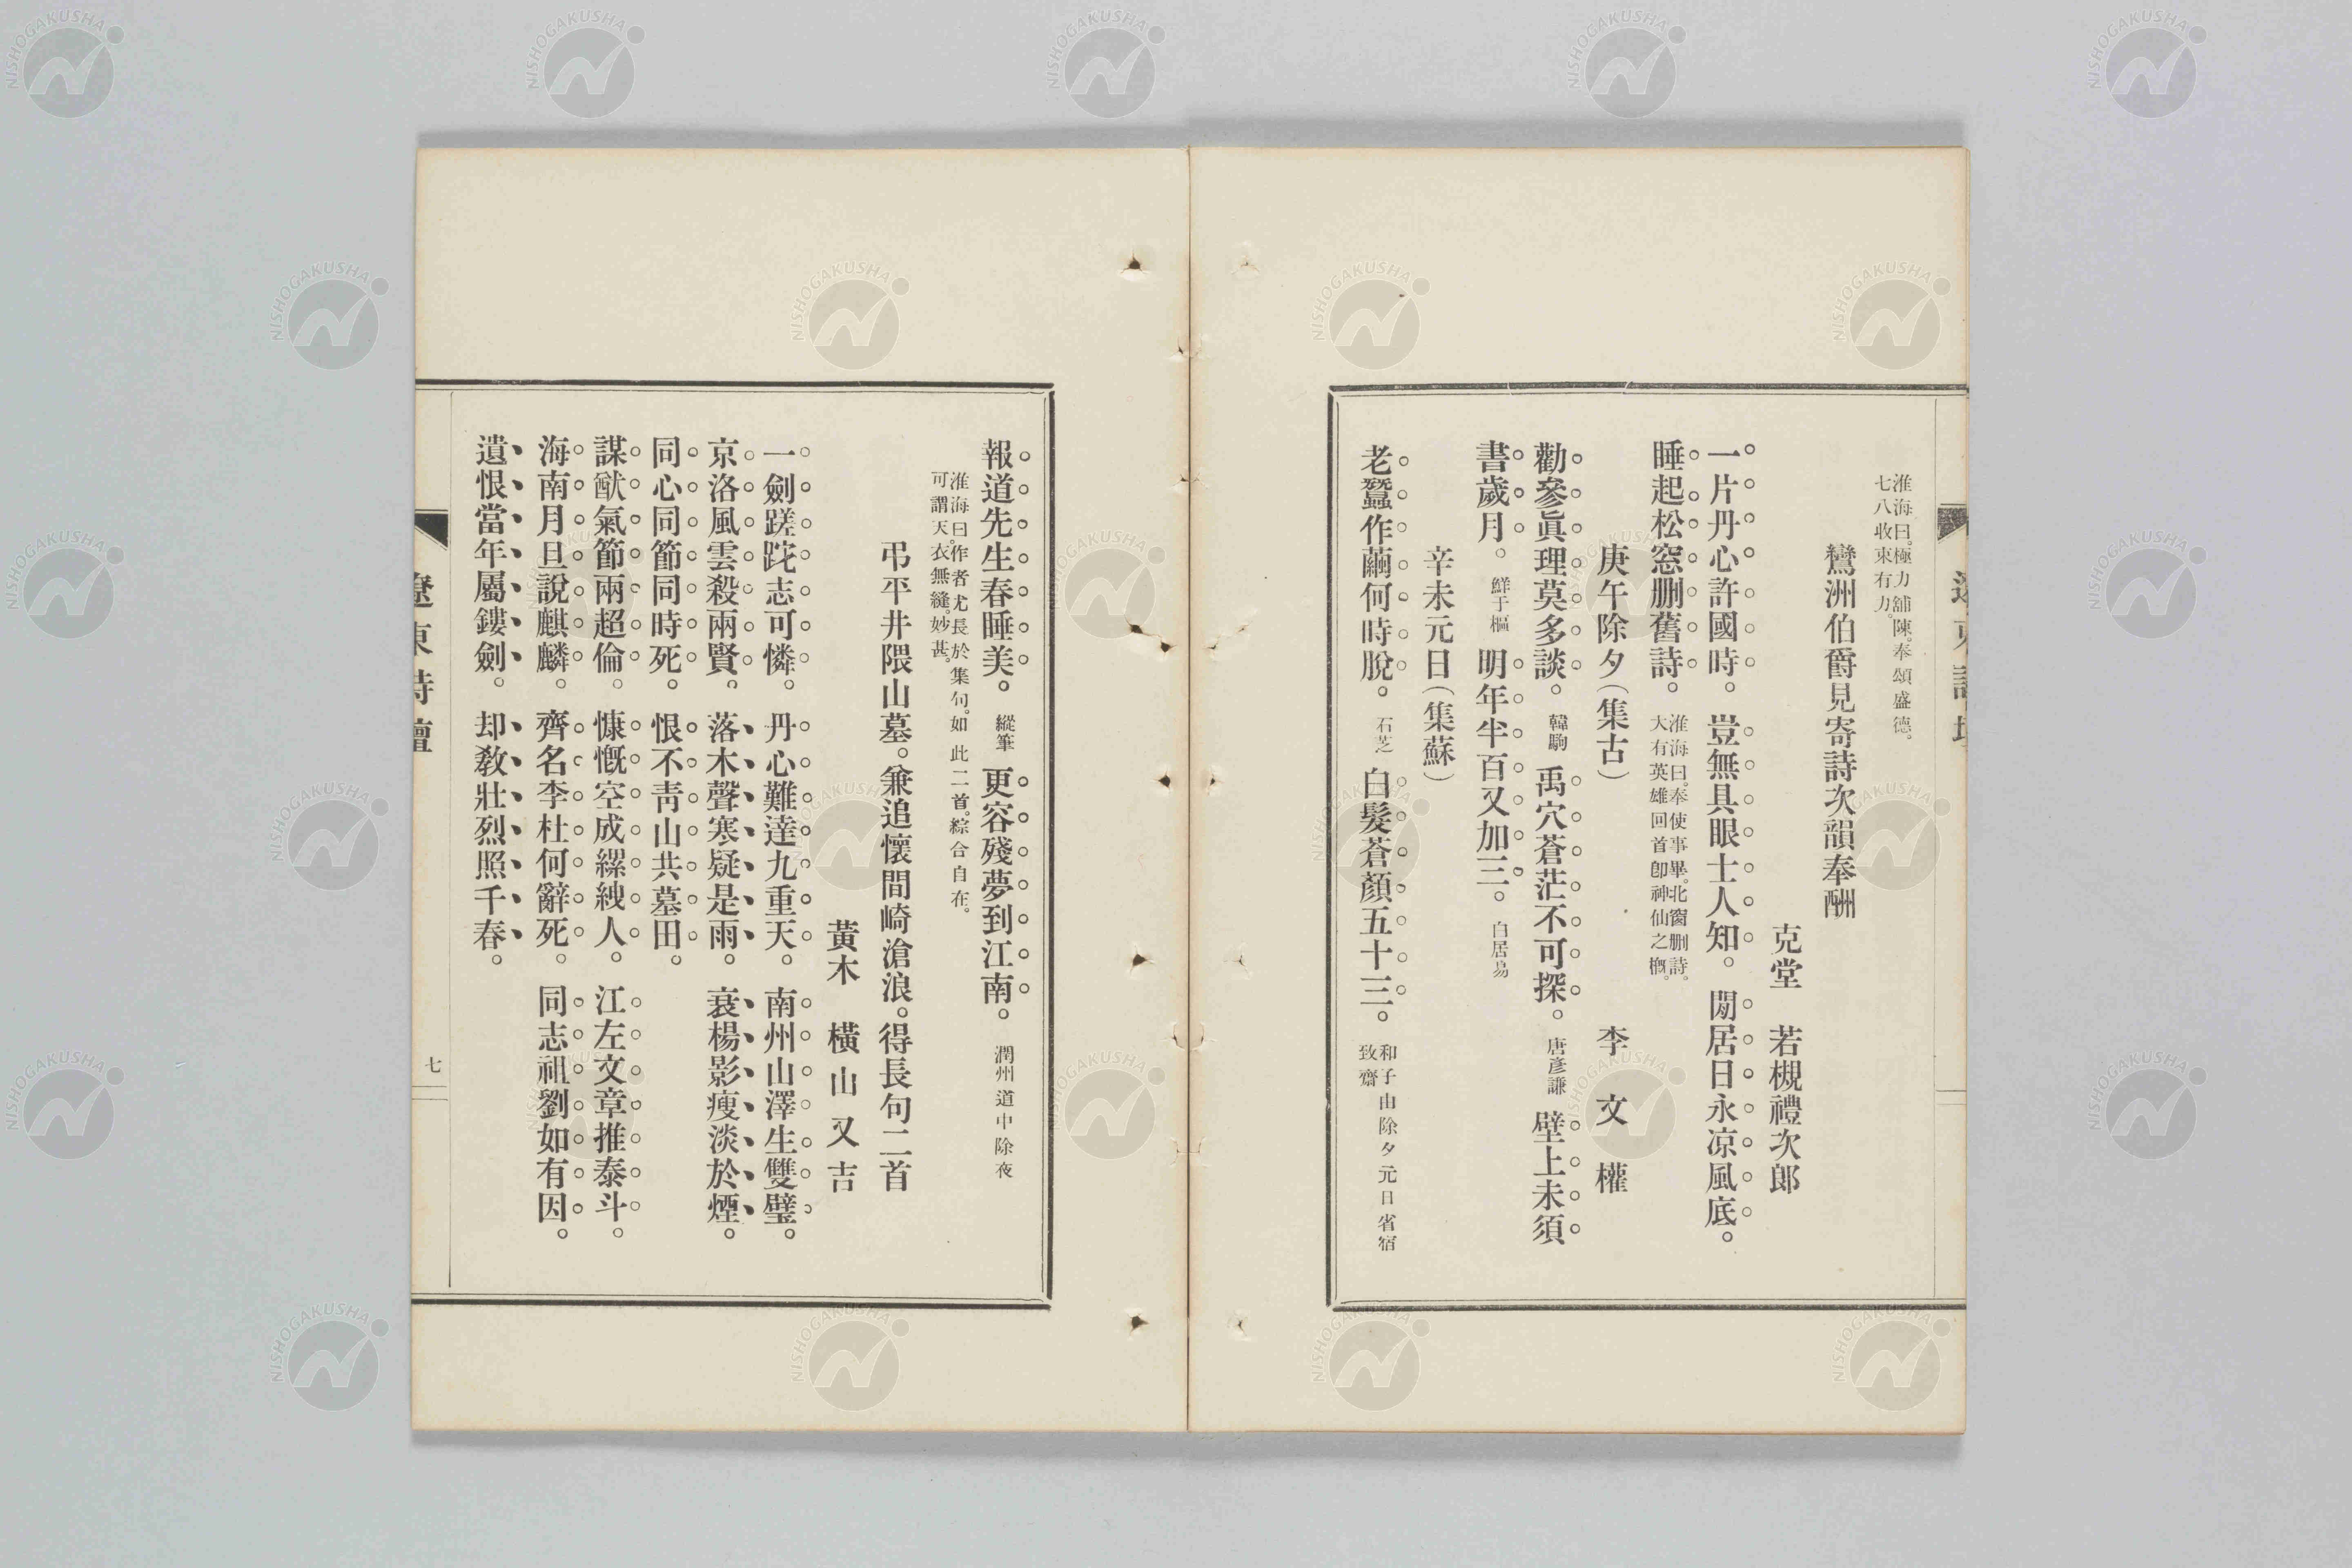 淮海曰。極力舖陳。奉頌盛德。
七八收束有力。
鸞洲伯爵見寄詩次韻奉酬
克堂 若槻禮次郎
一片丹心許國時。豈無具眼士人知。閒居日永凉風底。
睡起松窓删舊詩。
淮海曰。奉使事畢。北窗删詩。
大有英雄回首卽神仙之槪。
庚午除夕(集古) 李文權
勸參眞理莫多談。韓駒 禹穴蒼茫不可探。唐彥謙 壁上未須
書歲月。鮮于樞 明年半百又加三。白居易
辛未元日(集蘇)
老蠶作繭何時脫。石芝 白髮蒼顏五十三。
和子由除夕元日省宿
致齋
報道先生春睡美。縱筆 更容殘夢到江南。潤州道中除夜
淮海曰。作者尤長於集句。如此二首。綜合自在。
可謂天衣無縫。妙甚。
弔平井隈山墓。兼追懷間崎滄浪。得長句二首
黃木 橫山又吉
一劍蹉跎志可憐。丹心難達九重天。南州山澤生雙璧。
京洛風雲殺兩賢。落木聲寒疑是雨。衰楊影瘦淡於煙。
同心同節同時死。恨不靑山共墓田。
謀猷氣節兩超倫。慷慨空成縲絏人。江左文章推泰斗。
海南月旦說麒麟。齊名李杜何辭死。同志祖劉如有因。
遺恨當年屬鏤劍。却敎壯烈照千春。
遼東詩壇
七
NISHOGAKUSHA